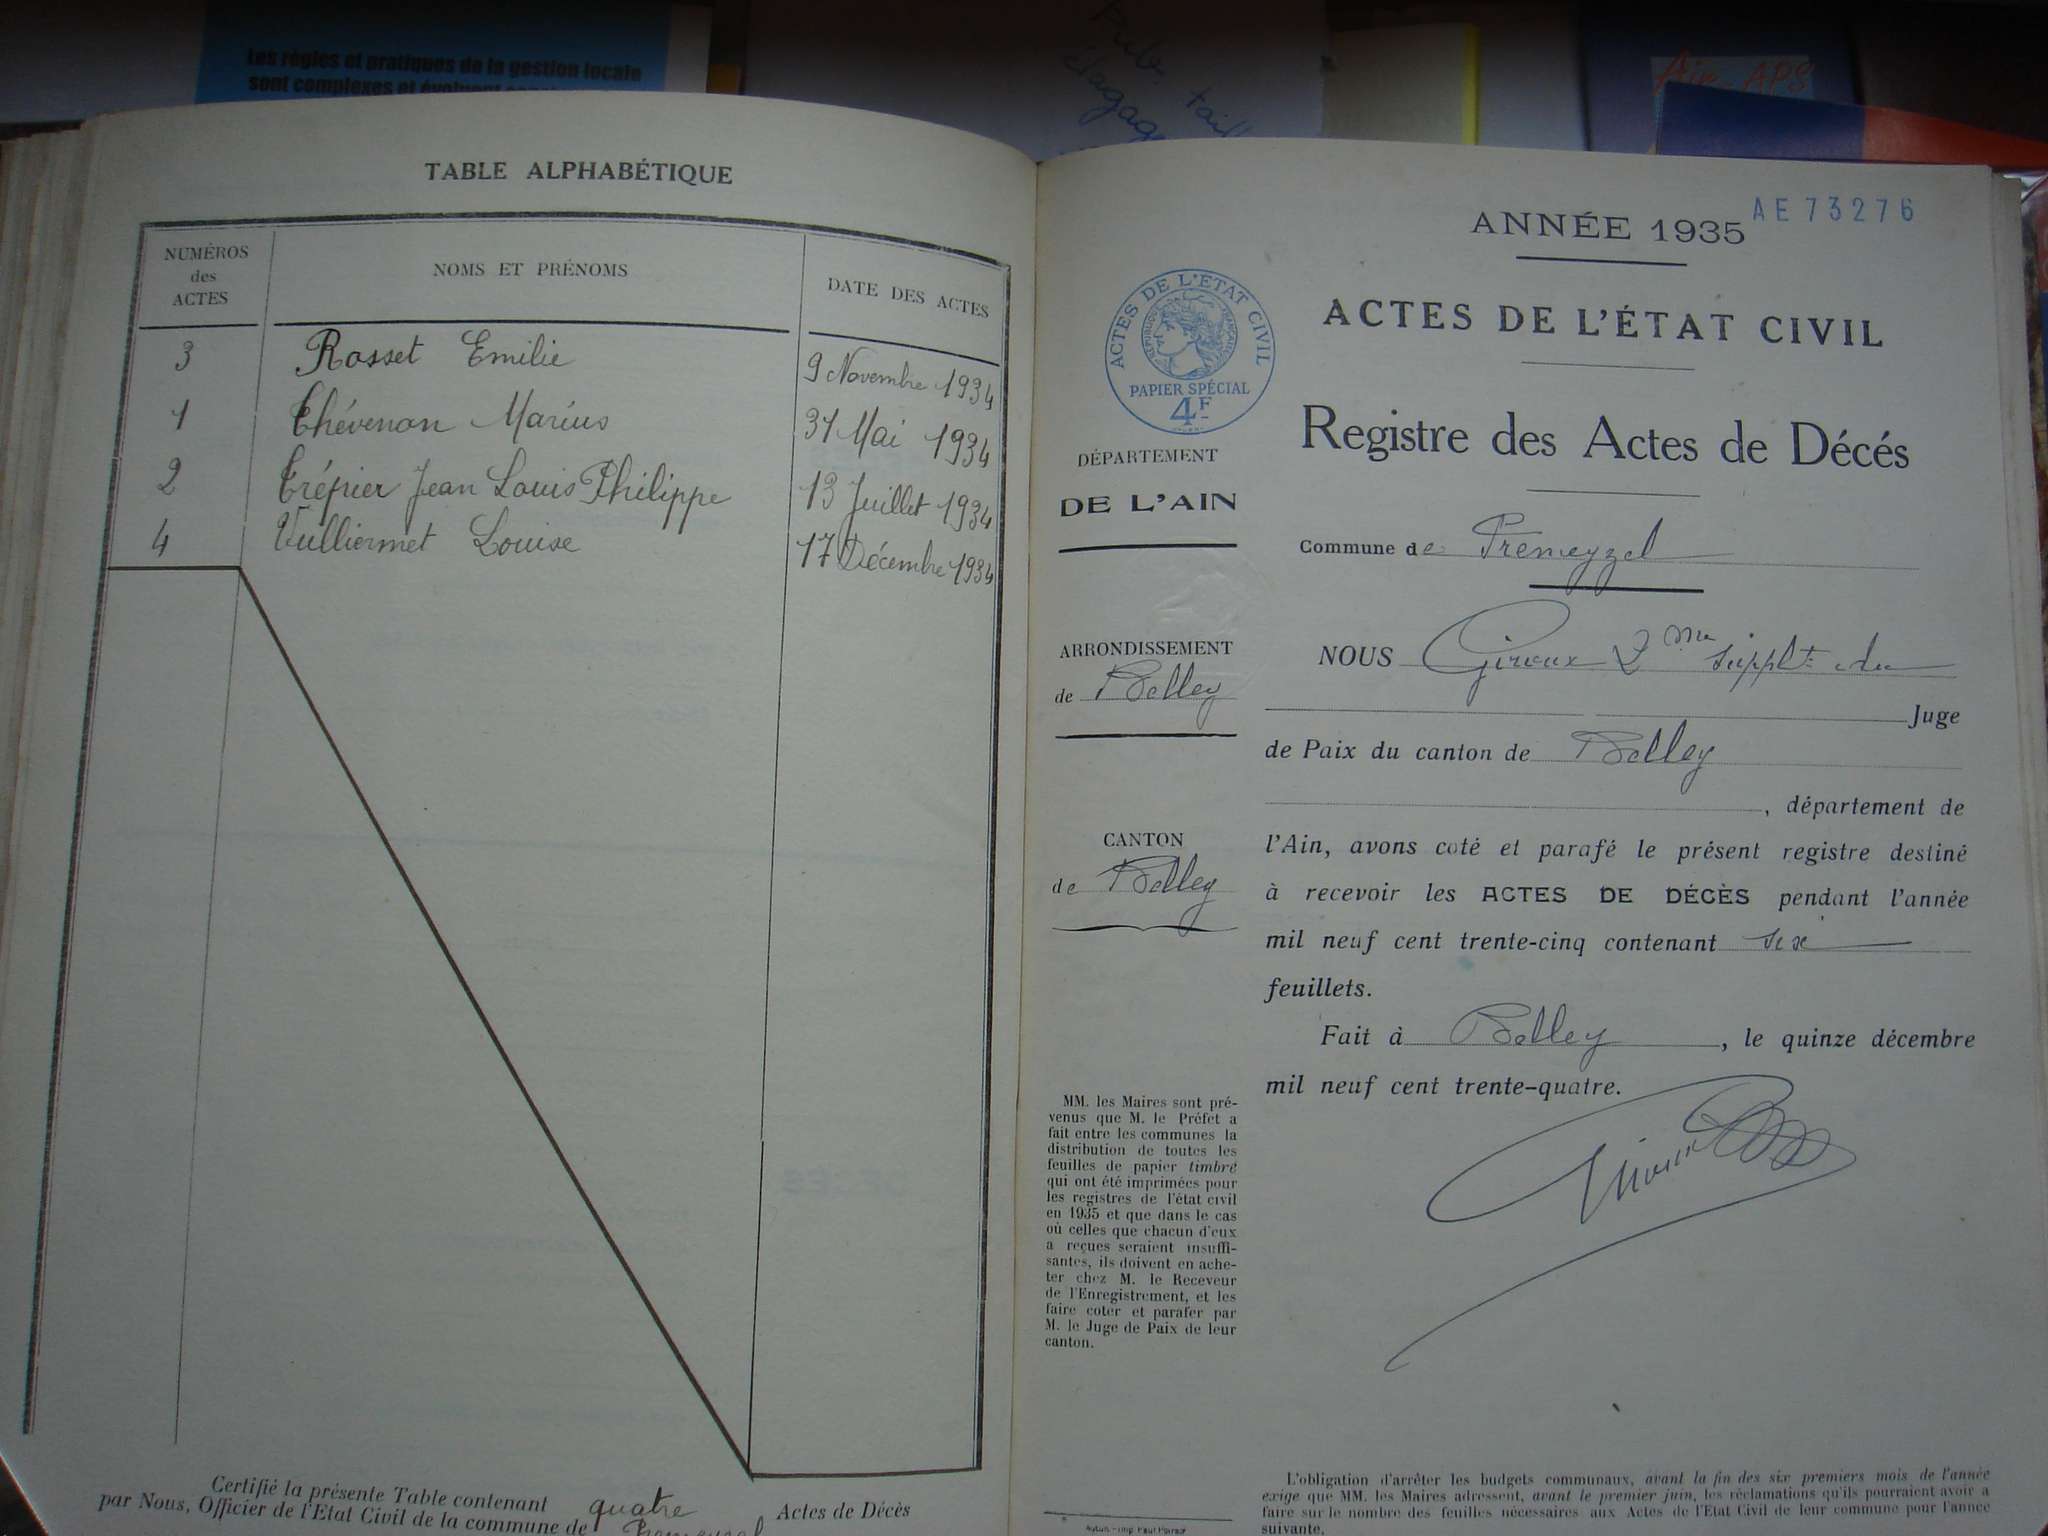 Les règles et pratiques de la gestion locale
sont complexes et évoluent
Pub. taill
élagag
Air APS
TABLE ALPHABÉTIQUE
NUMÉROS des ACTES
NOMS ET PRÉNOMS
DATE DES ACTES
3 Rosset Emilie 9 Novembre 1934
1 Thévenon Marius 31 Mai 1934
2 Trépier Jean Louis Philippe 13 Juillet 1934
4 Vulliermet Louise 17 Décembre 1934
Certifié la présente Table contenant quatre Actes de Décès
par Nous, Officier de l'Etat Civil de la commune de Premeyzel
AE 73276
ANNÉE 1935
ACTES DE L'ÉTAT CIVIL
Registre des Actes de Décés
ACTES DE L'ETAT CIVIL
REPUBLIQUE FRANÇAISE
PAPIER SPÉCIAL
4F
DÉPARTEMENT
DE L'AIN
ARRONDISSEMENT
de Belley
CANTON
de Belley
MM. les Maires sont pré-
venus que M. le Préfet a
fait entre les communes la
distribution de toutes les
feuilles de papier timbré
qui ont été imprimées pour
les registres de l'état civil
en 1935 et que dans le cas
où celles que chacun d'eux
a reçues seraient insuffi-
santes, ils doivent en ache-
ter chez M. le Receveur
de l'Enregistrement, et les
faire coter et parafer par
M. le Juge de Paix de leur
canton.
Commune de Premeyzel
NOUS Giroux 2me supplt du
Juge
de Paix du canton de Belley
, département de
l'Ain, avons coté et parafé le présent registre destiné
à recevoir les ACTES DE DÉCÈS pendant l'année
mil neuf cent trente-cinq contenant six
feuillets.
Fait à Belley, le quinze décembre
mil neuf cent trente-quatre.
L'obligation d'arrêter les budgets communaux, avant la fin des six premiers mois de l'année
exige que MM. les Maires adressent, avant le premier juin, les réclamations qu'ils pourraient avoir a
faire sur le nombre des feuilles nécessaires aux Actes de l'Etat Civil de leur commune pour l'année
suivante.